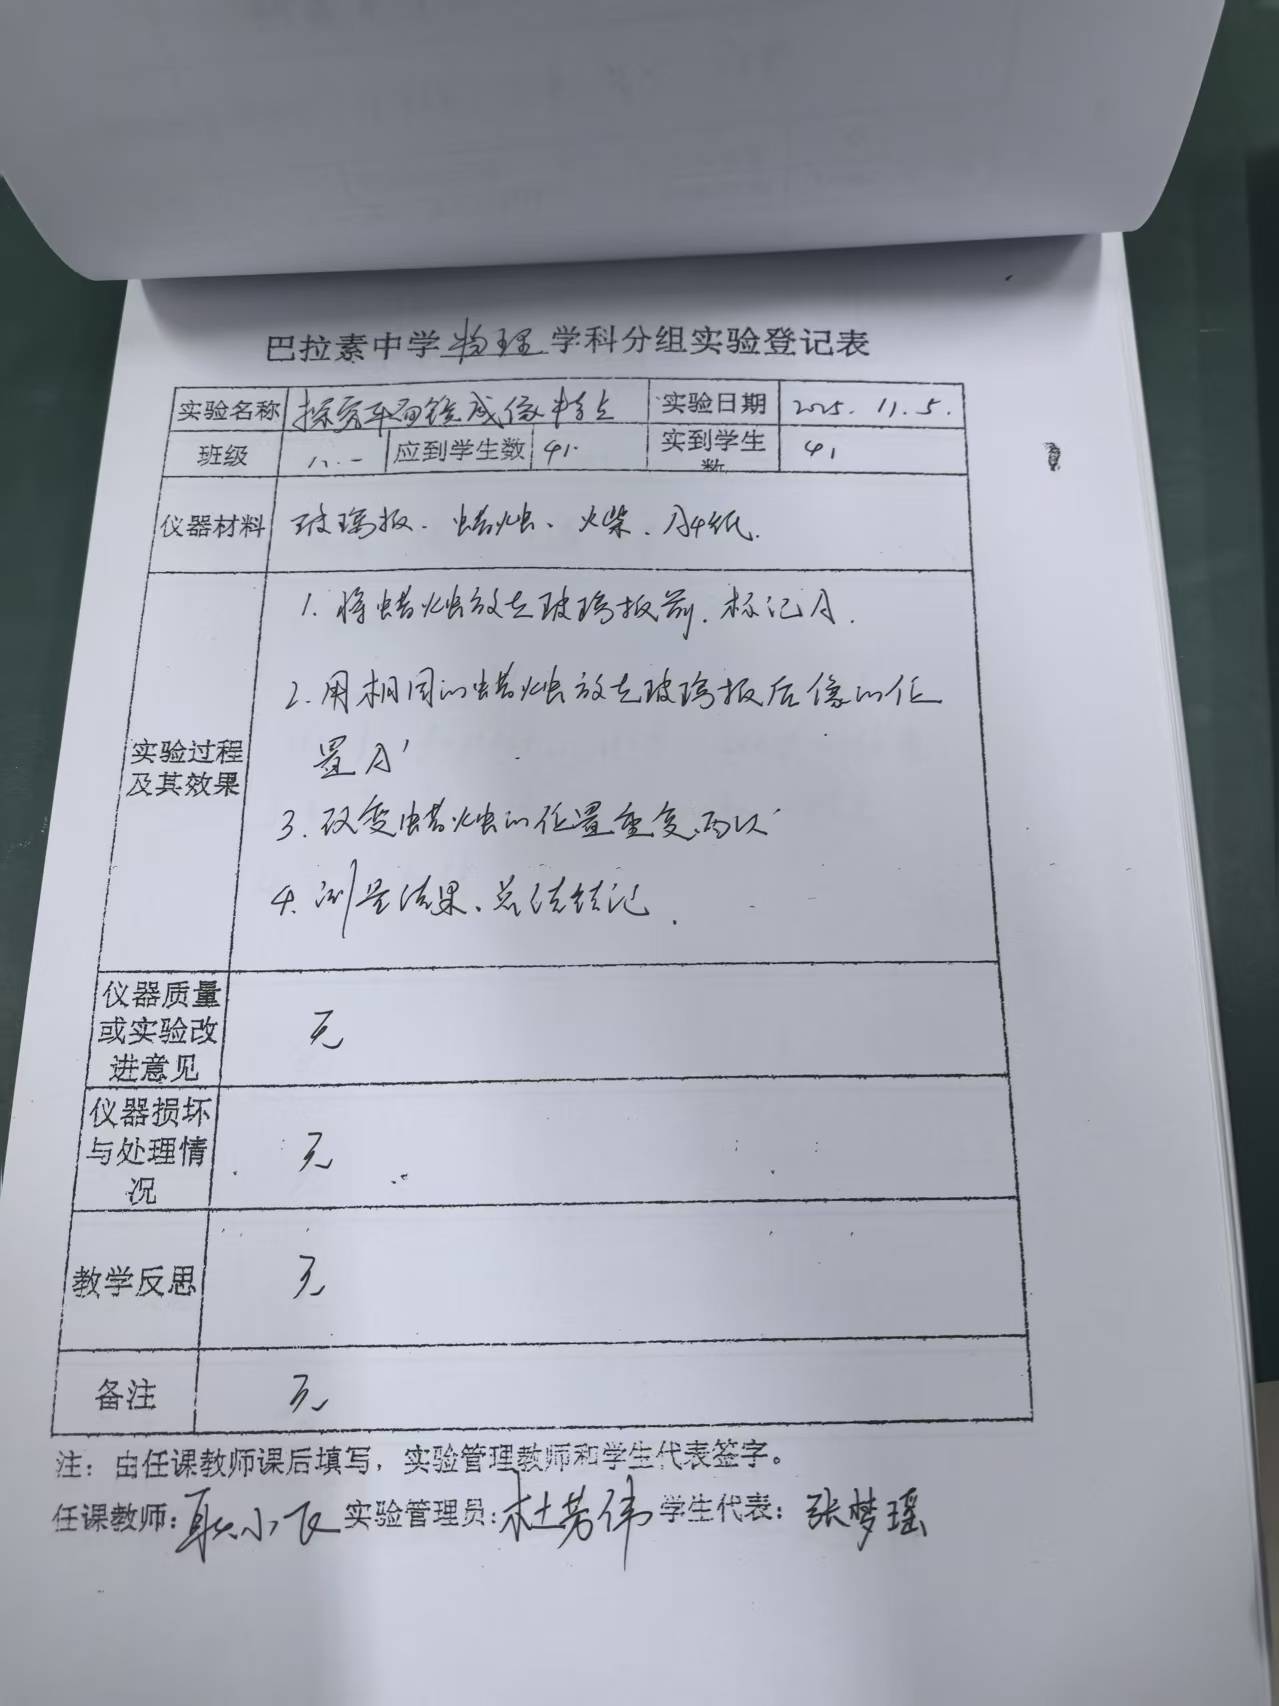 巴拉素中学物理学科分组实验登记表
实验名称 探究平面镜成像特点 实验日期 2025.11.5.
班级 八.一 应到学生数 41. 实到学生数 41
仪器材料 玻璃板、蜡烛、火柴、A4纸.
实验过程及其效果
1. 将蜡烛放在玻璃板前.标记A.
2. 用相同的蜡烛放在玻璃板后像的位
置A′
3. 改变蜡烛的位置重复两次
4. 测量结果、总结结记.
仪器质量
或实验改
进意见 无
仪器损坏
与处理情
况 无
教学反思 无
备注 无
注：由任课教师课后填写，实验管理教师和学生代表签字。
任课教师:耿小飞 实验管理员:杜芳伟 学生代表：张梦瑶